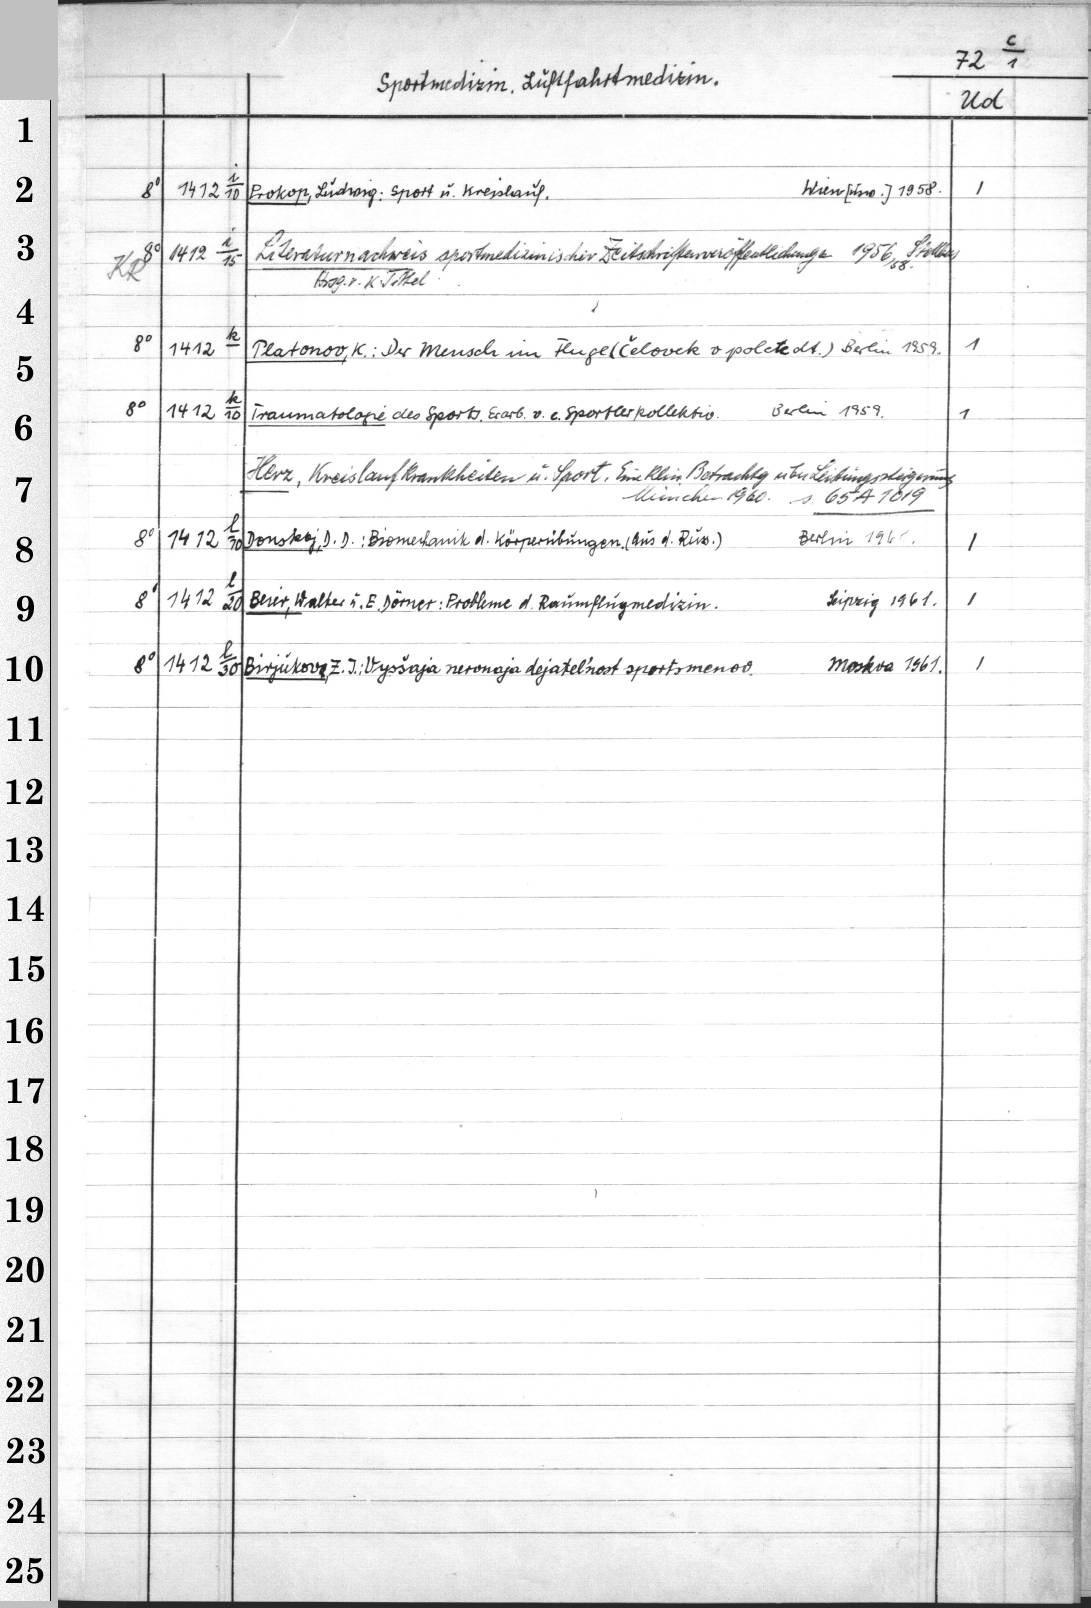 72 c/1
Sportmedizin. Luftfahrtmedizin.
Ud
1
2 8° 1412 i/10 Prokop, Ludwig: Sport u. Kreislauf. Wien [usw.] 1958. 1
3 KR 8° 1412 i/15 Literaturnachweis sportmedizinischer Zeitschriftenveröffentlichunge 1956,
58.
Hrsg. v. K. Tittel
4
5 8° 1412 k Platonov, K.: Der Mensch im Fluge (Čelovek v polete dt.) Berlin 1959. 1
6 8° 1412 k/10 Traumatologie des Sports. Erarb. v. e. Sportlerkollektiv. Berlin 1959. 1
7 Herz, Kreislaufkrankheiten u. Sport. Eine klin. Betrachtg über Leistungssteigerung
München 1960. s. 65 A 1019
8 8° 1412 l/10 Donskoj, D. D.: Biomechanik d. Körperübungen. (Aus d. Russ.) Berlin 1961. 1
9 8° 1412 l/20 Beier, Walter u. E. Dörner: Probleme d. Raumflugmedizin. Leipzig 1961. 1
10 8° 1412 l/30 Birjukova, Z. I.: Vysšaja nervnaja dejatel'nost sportsmenov. Moskva 1961. 1
11
12
13
14
15
16
17
18
19
20
21
22
23
24
25